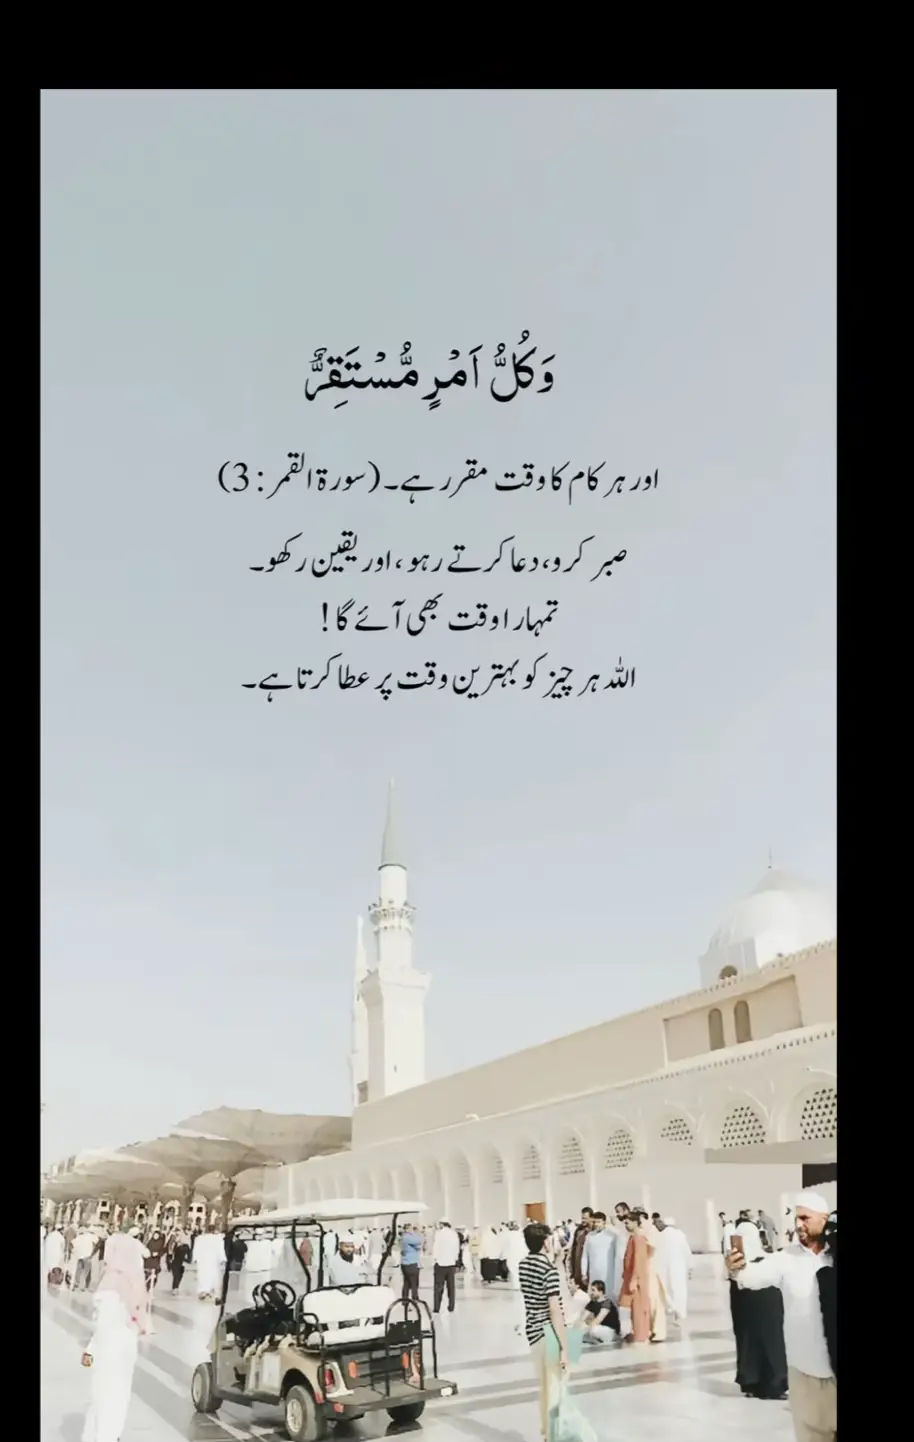 وَكُلُّ اَمْرٍ مُّسْتَقِرٌّ
اور ہر کام کا وقت مقرر ہے۔ (سورۃ القمر : 3)
صبر کرو، دعا کرتے رہو، اور یقین رکھو۔
تمہارا وقت بھی آئے گا!
اللہ ہر چیز کو بہترین وقت پر عطا کرتا ہے۔